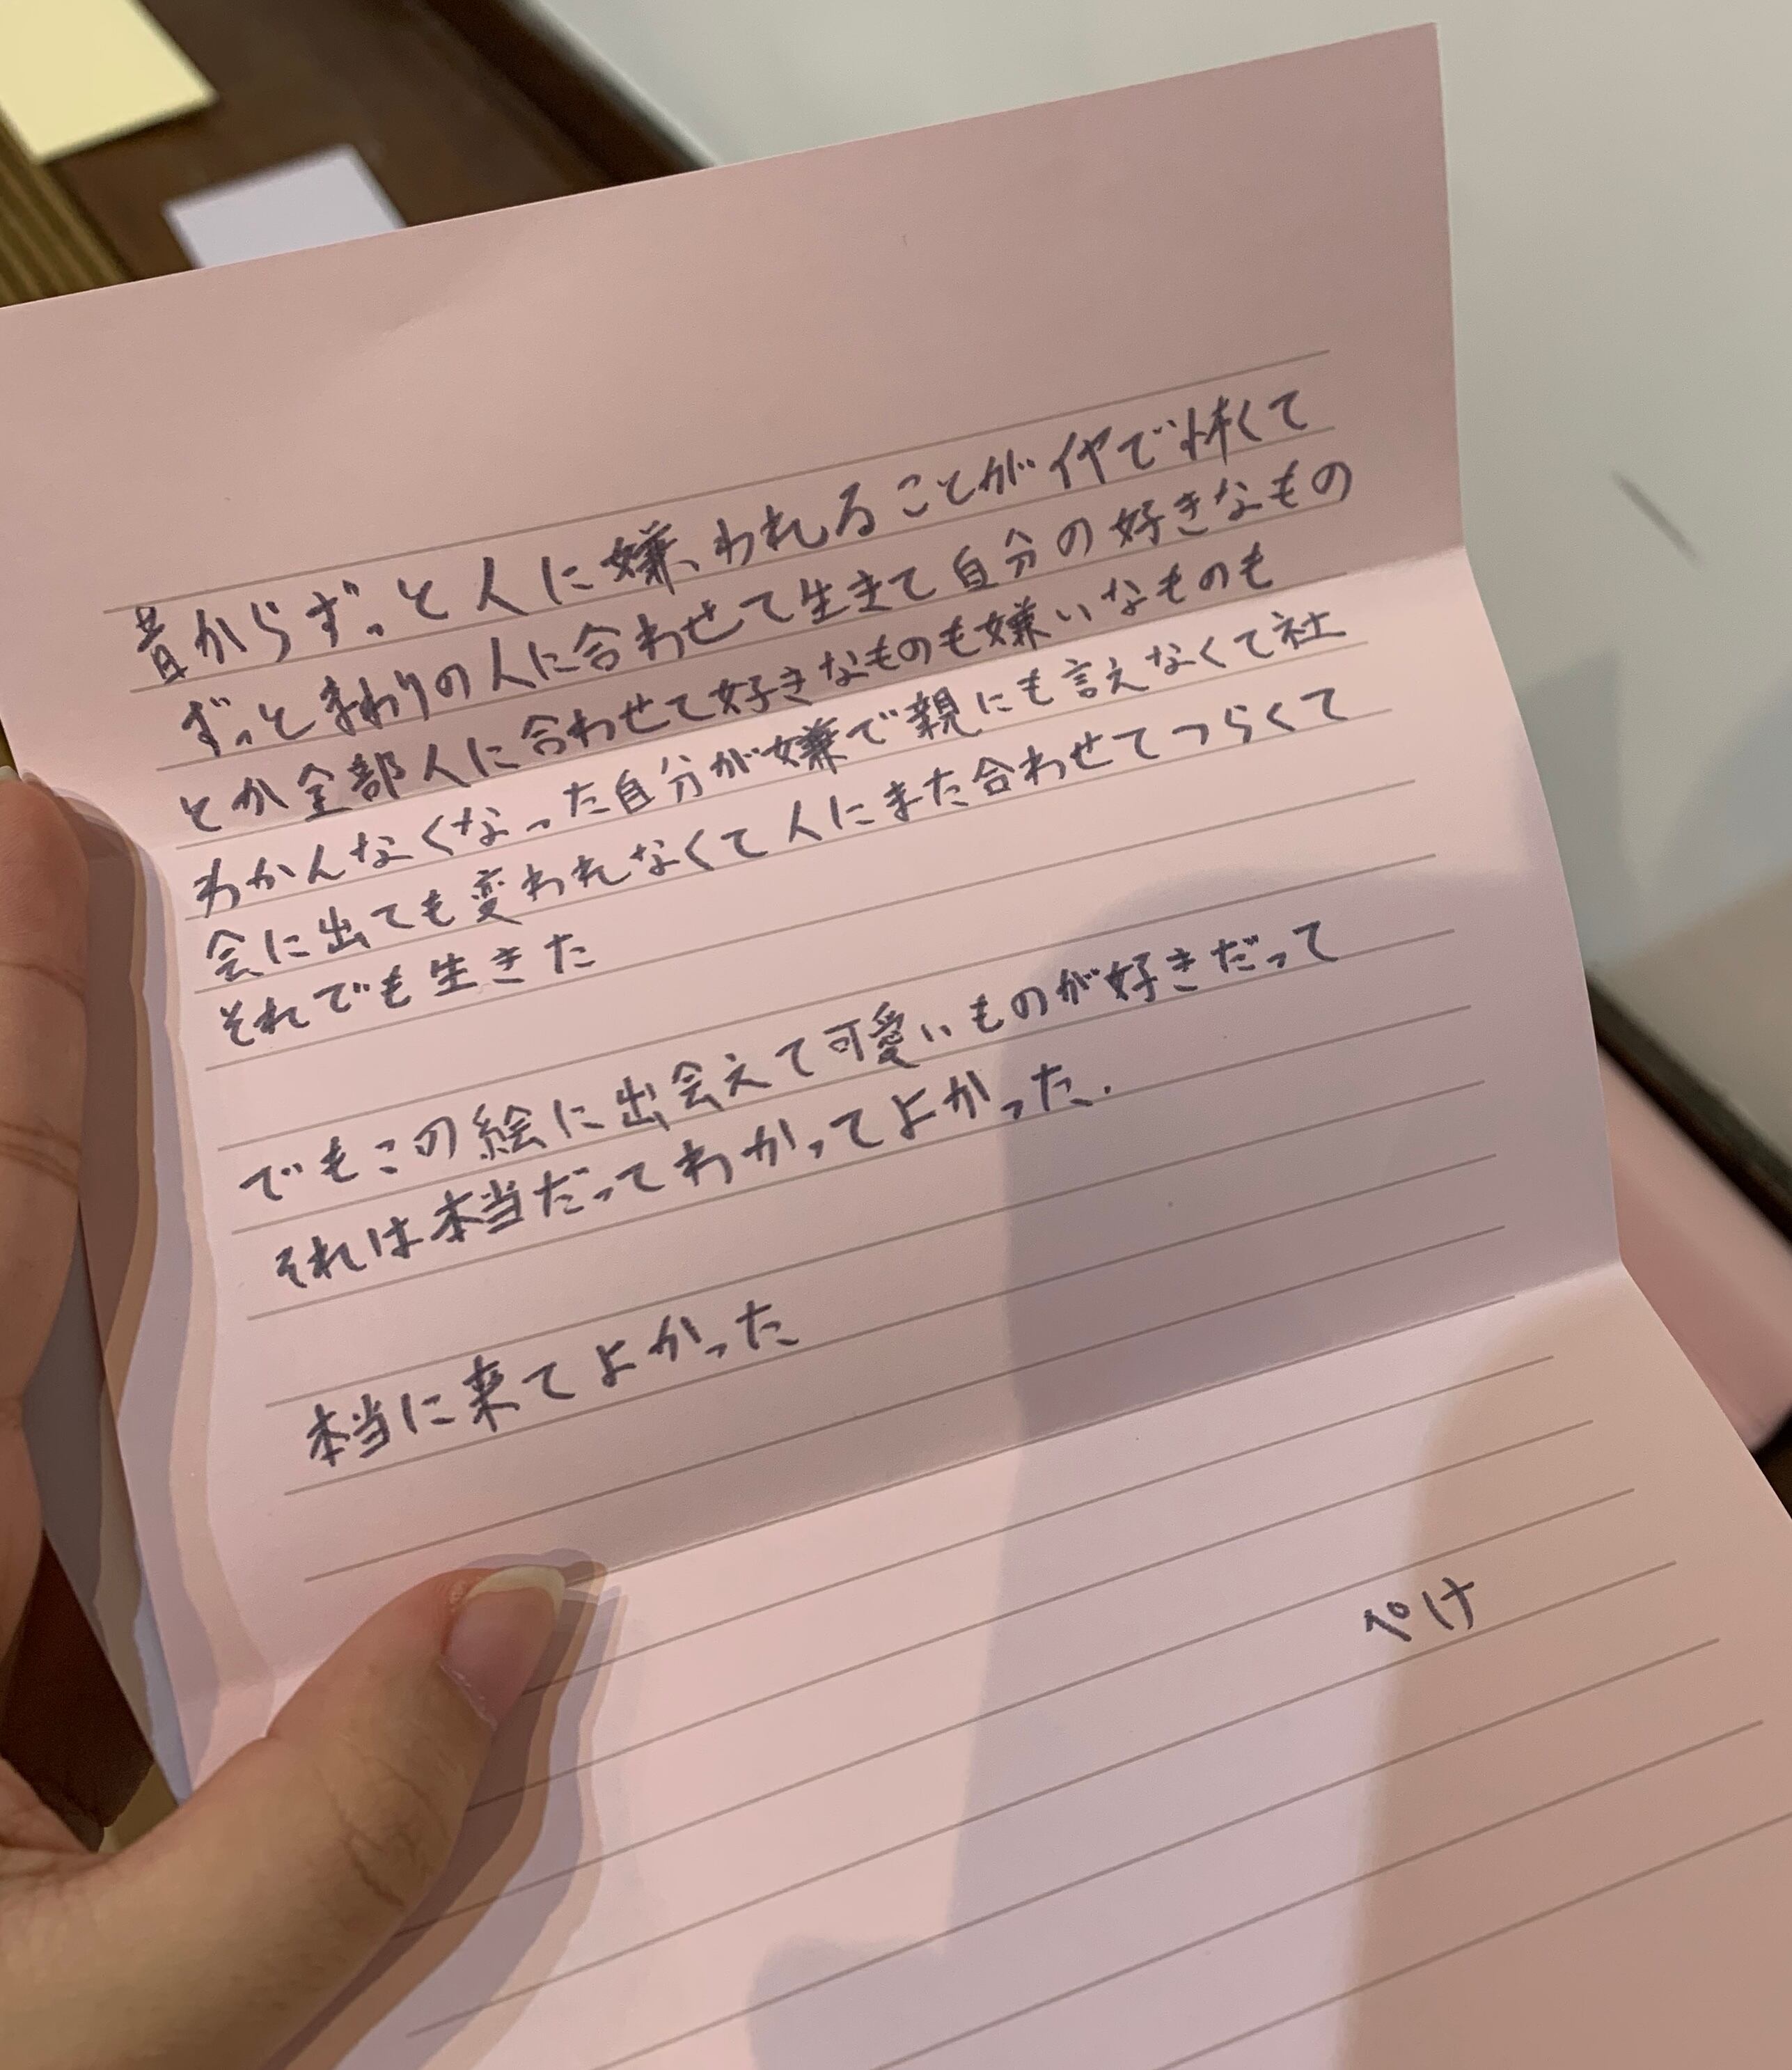 昔からずっと人に嫌われることがイヤで怖くて
ずっとまわりの人に合わせて生きて自分の好きなもの
とか全部人に合わせて好きなものも嫌いなものも
わかんなくなった自分が嫌で親にも言えなくて社
会に出ても変われなくて人にまた合わせてつらくて
それでも生きた
でもこの絵に出会えて可愛いものが好きだって
それは本当だってわかってよかった.
本当に来てよかった
ぺけ